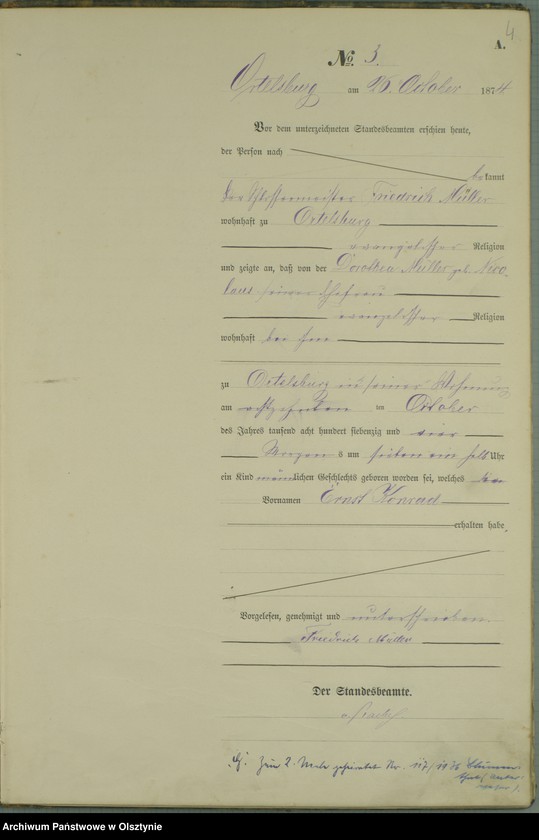 4
A.
No. 3.
Ortelsburg am 26. October 1874
Vor dem unterzeichneten Standesbeamten erschien heute,
der Person nach
bekannt
der Schlossermeister Friedrich Müller
wohnhaft zu Ortelsburg
evangelischer Religion
und zeigte an, daß von der Dorothea Müller geb. Nico-
laus seiner Ehefrau
evangelischer Religion
wohnhaft bei ihm
zu Ortelsburg in seiner Wohnung
am achtzehnten im October
des Jahres tausend acht hundert siebenzig und vier
Morgens um sieben ein halb Uhr
ein Kind männlichen Geschlechts geboren worden sei, welches den
Vornamen Ernst Konrad
erhalten habe.
Vorgelesen, genehmigt und unterschrieben.
Friedrich Müller
Der Standesbeamte.
Zum 2. Male geheiratet Nr. 117/1926
Archiwum Państwowe w Olsztynie